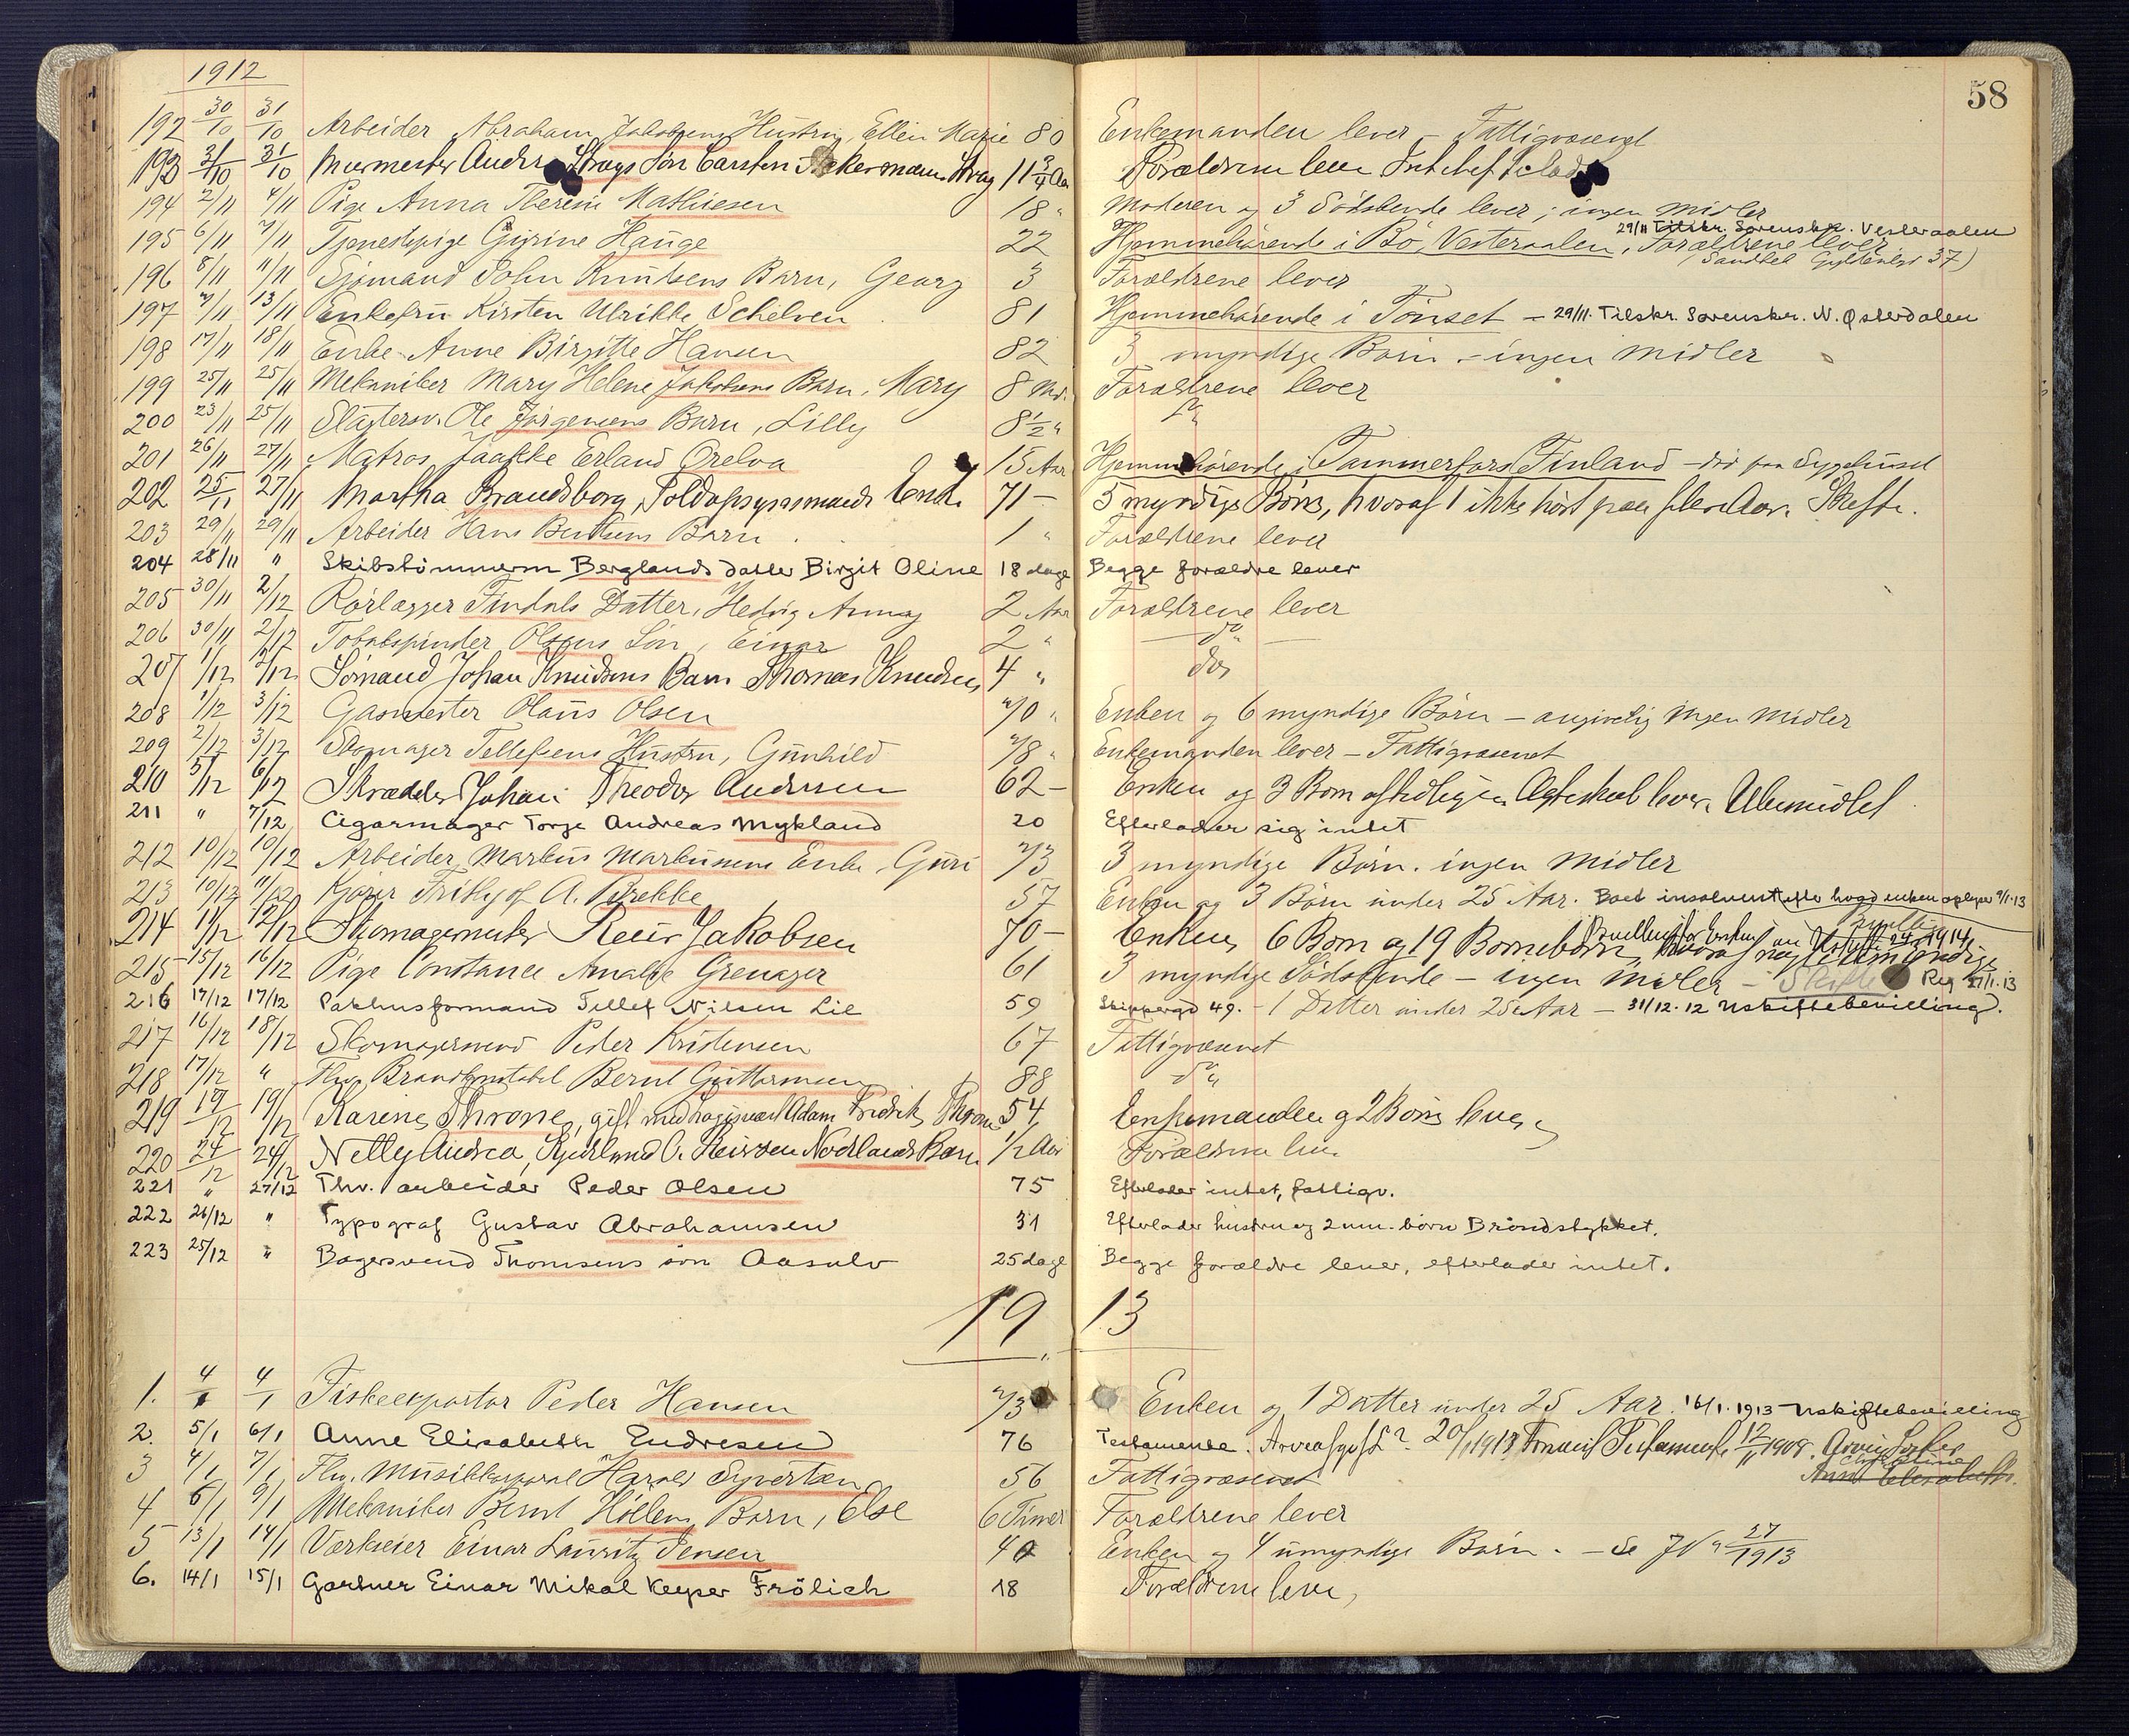 1912
58
192 30/10 31/10 Arbeider Abraham Jakobsens Hustru, Ellen Marie 80 Enkemanden lever – Fattigvæsenet
193 31/10 31/10 Murmester Anders Krags Søn Carsten Krag 11 3/4 Aar Forældrene lever Intet efterladt
194 2/11 4/11 Pige Anna Therese Mathiesen 18 " Moderen og 3 Södskende lever; ingen Midler
195 6/11 7/11 Tjenestepige Gijrine Hauge 22 Hjemmehörende i Bö, Vesteraalen, Forældrene lever
29/11 Tilskr. Sorenskr. Vesteraalen
(Sandtel Gyldenløs 37)
196 8/11 11/11 Sjömand John Knudsens Barn, Georg 3 Forældrene lever
197 9/11 13/11 Enkefru Kirsten Ulrikke Schelven 81 Hjemmehörende i Tönset – 29/11. Tilskr. Sorenskr. N. Østerdalen
198 17/11 18/11 Enke Anne Birgitte Hansen 82 3 myndige Börn – ingen Midler
199 25/11 25/11 Mekaniker Mary Helene Jakobsens Barn, Mary 8 Md. Forældrene lever
200 23/11 25/11 Slagtersv. Ole Jörgensens Barn, Lilly 8 1/2 " do
201 26/11 27/11 Matros Jaakke Erland Orelva 15 Aar Hjemmehörende i Tammerfors Finland – död paa Sygehuset
202 25/11 27/11 Martha Brandsborg, Toldopsynsmands Enke 71 – 5 myndige Börn, hvoraf 1 ikke hört paa flere Aar. Skifte.
203 29/11 29/11 Arbeider Hans Bentsens Barn 1 " Forældrene lever
204 28/11 " Skibstömmerm Berglands datter Birgit Oline 18 dage Begge forældre lever
205 30/11 2/12 Rörlægger Findals Datter, Hedvig Annay 2 Aar Forældrene lever
206 30/11 2/12 Tobakspinder Olsens Sön, Einar 2 " do
207 1/12 2/12 Sömand Johan Knudsens Barn Thomas Knudsen 4 " do
208 1/12 3/12 Gasmester Olaus Olsen 70 " Enken og 6 myndige Börn – angivelig ingen Midler
209 2/12 3/12 Skomager Tellefsens Hustru, Gunhild 78 " Enkemanden lever – Fattigvæsenet
210 5/12 6/12 Skrædder Johan Theodor Andersen 62 – Enken og 3 Börn af tidligere Ægteskab lever. Ubemidlet
211 " 7/12 Cigarmager Torje Andreas Mykland 20 Efterlader sig intet
212 10/12 10/12 Arbeider Markus Markussens Enke, Guri 73 3 myndige Börn. ingen Midler
213 10/12 11/12 Kjører Frithjof A. Brekke 57 Enken og 3 Börn under 25 Aar. Boet insolvent efter hvad enken oplyser 9/1.13
214 11/12 12/12 Skomagermester Reier Jakobsen 70 – Enken, 6 Börn og 19 Börnebörn, hvoraf nogle umyndige
215 15/12 16/12 Pige Constance Amalie Grenager 61 3 myndige Södskende – ingen Midler – Skifte Reg 27/1.13
216 17/12 17/12 Pakhusformand Tellef Nilsen Lie 59 Skippergd 49. – 1 Datter under 25 Aar – 31/12.12 Uskiftebevilling.
217 16/12 18/12 Skomagersvend Peder Kristensen 67 Fattigvæsenet
218 17/12 " Fhv. Brandkonstabel Bernt Guttormsen 88 do
219 19/12 19/12 Karine Throne, gift med Adam Fredrik Throne 54 Enkemanden og 2 Börn lever
220 24/12 24/12 Nelly Andrea, Reier Nodlands Barn 1/2 Aar Forældrene lever
221 " 27/12 Fhv. arbeider Peder Olsen 75 Efterlader intet, fattigv.
222 26/12 " Typograf Gustav Abrahamsen 31 Efterlader hustru og 2 um. börn Bröndstykket.
223 25/12 " Bagersvend Thomsens sön Aasulv 25 dage Begge forældre lever, efterlader intet.
1913
1. 4/1 4/1 Fiskeexportör Peder Hansen 73 Enken og 1 Datter under 25 Aar. 16/1. 1913 – Uskiftebevilling
2. 5/1 6/1 Anne Elisabeth Endresen 76 Testamente. 20/1 1913 12/11 1908.
Anne Elisabeth
3 4/1 7/1 Fhv. Musikkorporal Harald Syvertsen 56 Fattigvæsenet
4 6/1 9/1 Mekaniker Bernt Höllens Barn, Else 6 Timer Forældrene lever
5 13/1 14/1 Værkseier Einar Lauritz Jensen 40 Enken og 4 umyndige Börn. – Se JNo 27/1913
6. 14/1 15/1 Gartner Einar Mikal Keyser Frölich 18 Forældrene lever,